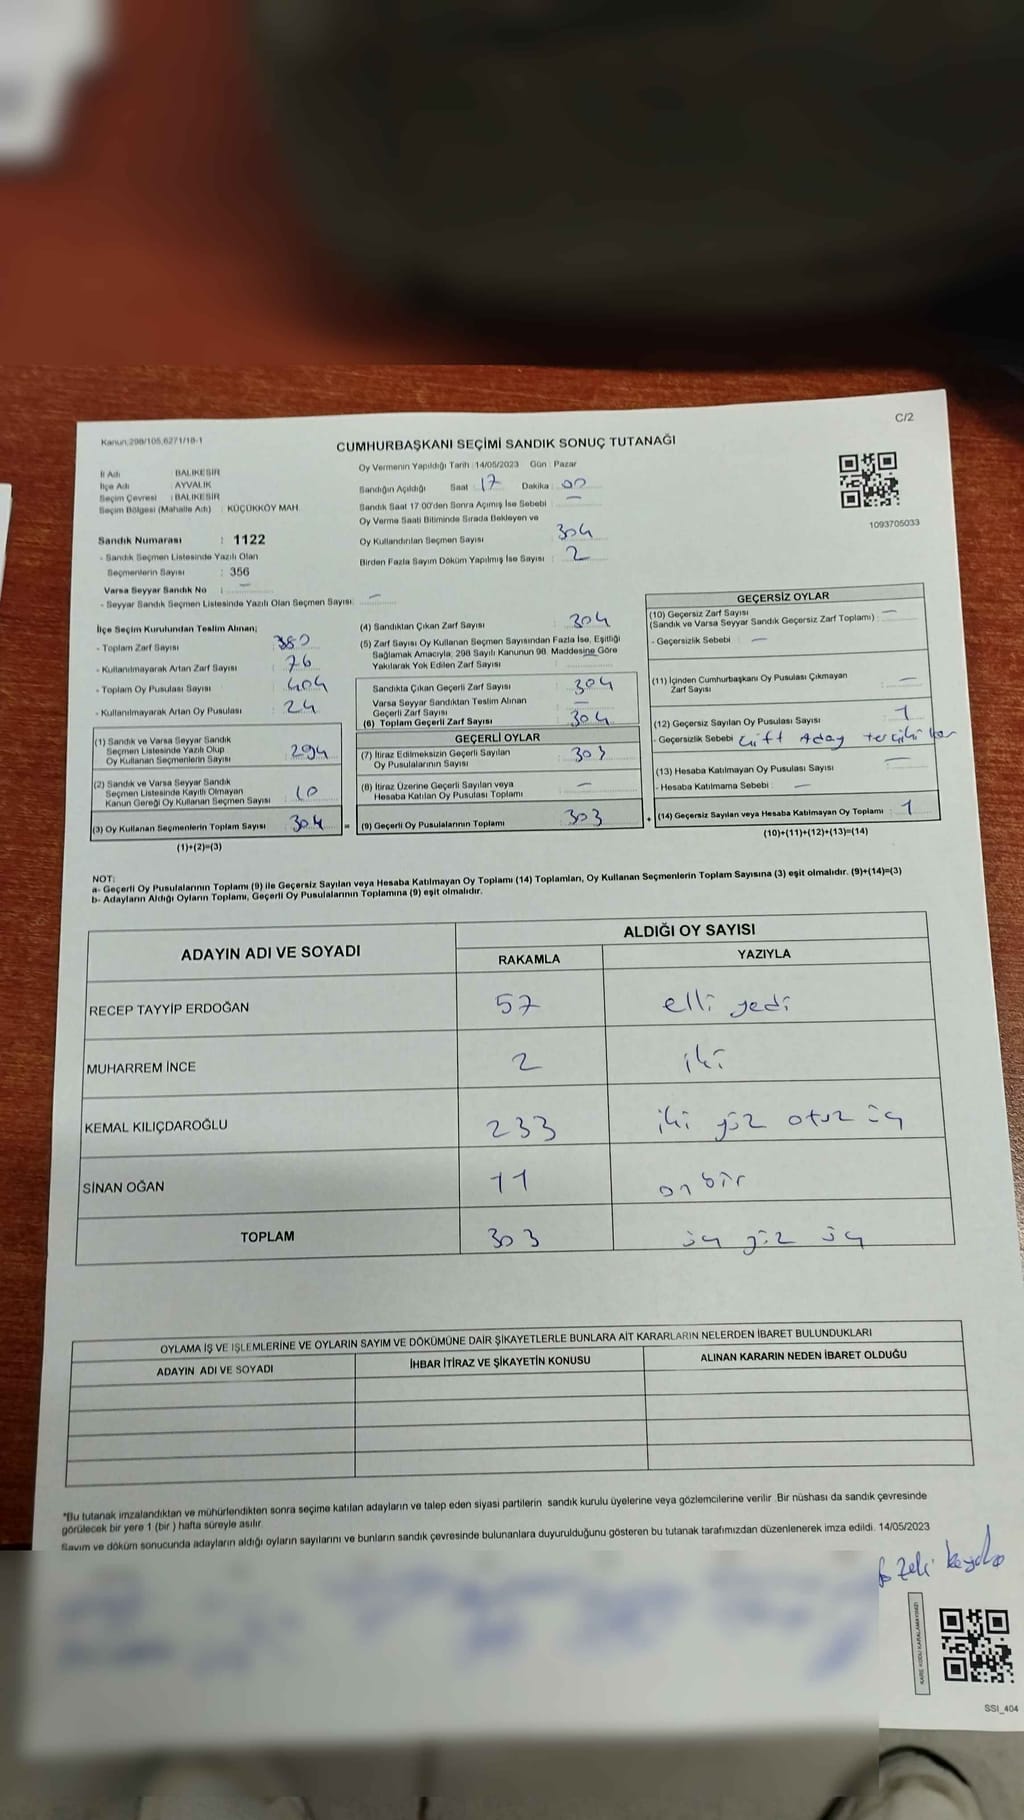 C/2
Kanun:298/105,6271/18-1
CUMHURBAŞKANI SEÇİMİ SANDIK SONUÇ TUTANAĞI
İl Adı : BALIKESİR
İlçe Adı : AYVALIK
Seçim Çevresi : BALIKESİR
Seçim Bölgesi (Mahalle Adı) : KÜÇÜKKÖY MAH.
Sandık Numarası : 1122
- Sandık Seçmen Listesinde Yazılı Olan
Seçmenlerin Sayısı : 356
Varsa Seyyar Sandık No : —
- Seyyar Sandık Seçmen Listesinde Yazılı Olan Seçmen Sayısı: —
Oy Vermenin Yapıldığı Tarih : 14/05/2023 Gün : Pazar
Sandığın Açıldığı Saat : 17 Dakika : 00
Sandık Saat 17:00'den Sonra Açımış İse Sebebi : —
Oy Verme Saati Bitiminde Sırada Bekleyen ve
Oy Kullandırılan Seçmen Sayısı : 304
Birden Fazla Sayım Döküm Yapılmış İse Sayısı : 2
1093705033
İlçe Seçim Kurulundan Teslim Alınan;
- Toplam Zarf Sayısı : 380
- Kullanılmayarak Artan Zarf Sayısı : 76
- Toplam Oy Pusulası Sayısı : 404
- Kullanılmayarak Artan Oy Pusulası : 24
(1) Sandık ve Varsa Seyyar Sandık
Seçmen Listesinde Yazılı Olup
Oy Kullanan Seçmenlerin Sayısı : 294
(2) Sandık ve Varsa Seyyar Sandık
Seçmen Listesinde Kayıtlı Olmayan
Kanun Gereği Oy Kullanan Seçmen Sayısı : 10
(3) Oy Kullanan Seçmenlerin Toplam Sayısı : 304
(1)+(2)=(3)
(4) Sandıktan Çıkan Zarf Sayısı : 304
(5) Zarf Sayısı Oy Kullanan Seçmen Sayısından Fazla İse, Eşitliği
Sağlamak Amacıyla, 298 Sayılı Kanunun 98. Maddesine Göre
Yakılarak Yok Edilen Zarf Sayısı : —
Sandıkta Çıkan Geçerli Zarf Sayısı : 304
Varsa Seyyar Sandıktan Teslim Alınan
Geçerli Zarf Sayısı : —
(6) Toplam Geçerli Zarf Sayısı : 304
GEÇERLİ OYLAR
(7) İtiraz Edilmeksizin Geçerli Sayılan
Oy Pusulalarının Sayısı : 303
(8) İtiraz Üzerine Geçerli Sayılan veya
Hesaba Katılan Oy Pusulası Toplamı : —
= (9) Geçerli Oy Pusulalarının Toplamı : 303
GEÇERSİZ OYLAR
(10) Geçersiz Zarf Sayısı
(Sandık ve Varsa Seyyar Sandık Geçersiz Zarf Toplamı) : —
- Geçersizlik Sebebi : —
(11) İçinden Cumhurbaşkanı Oy Pusulası Çıkmayan
Zarf Sayısı : —
(12) Geçersiz Sayılan Oy Pusulası Sayısı : 1
- Geçersizlik Sebebi Çift Aday tercihi
(13) Hesaba Katılmayan Oy Pusulası Sayısı : —
- Hesaba Katılmama Sebebi : —
+ (14) Geçersiz Sayılan veya Hesaba Katılmayan Oy Toplamı : 1
(10)+(11)+(12)+(13)=(14)
NOT:
a- Geçerli Oy Pusulalarının Toplamı (9) ile Geçersiz Sayılan veya Hesaba Katılmayan Oy Toplamı (14) Toplamları, Oy Kullanan Seçmenlerin Toplam Sayısına (3) eşit olmalıdır. (9)+(14)=(3)
b- Adayların Aldığı Oyların Toplamı, Geçerli Oy Pusulalarının Toplamına (9) eşit olmalıdır.
ADAYIN ADI VE SOYADI ALDIĞI OY SAYISI
RAKAMLA YAZIYLA
RECEP TAYYİP ERDOĞAN 57 elli yedi
MUHARREM İNCE 2 iki
KEMAL KILIÇDAROĞLU 233 iki yüz otuz üç
SİNAN OĞAN 11 on bir
TOPLAM 303 üç yüz üç
OYLAMA İŞ VE İŞLEMLERİNE VE OYLARIN SAYIM VE DÖKÜMÜNE DAİR ŞİKAYETLERLE BUNLARA AİT KARARLARIN NELERDEN İBARET BULUNDUKLARI
ADAYIN ADI VE SOYADI İHBAR İTİRAZ VE ŞİKAYETİN KONUSU ALINAN KARARIN NEDEN İBARET OLDUĞU
*Bu tutanak imzalandıktan ve mühürlendikten sonra seçime katılan adayların ve talep eden siyasi partilerin sandık kurulu üyelerine veya gözlemcilerine verilir. Bir nüshası da sandık çevresinde
görülecek bir yere 1 (bir) hafta süreyle asılır.
Sayım ve döküm sonucunda adayların aldığı oyların sayılarını ve bunların sandık çevresinde bulunanlara duyurulduğunu gösteren bu tutanak tarafımızdan düzenlenerek imza edildi. 14/05/2023
Zeki
KARE KODU KARALAMAYINIZ!
SSI_404